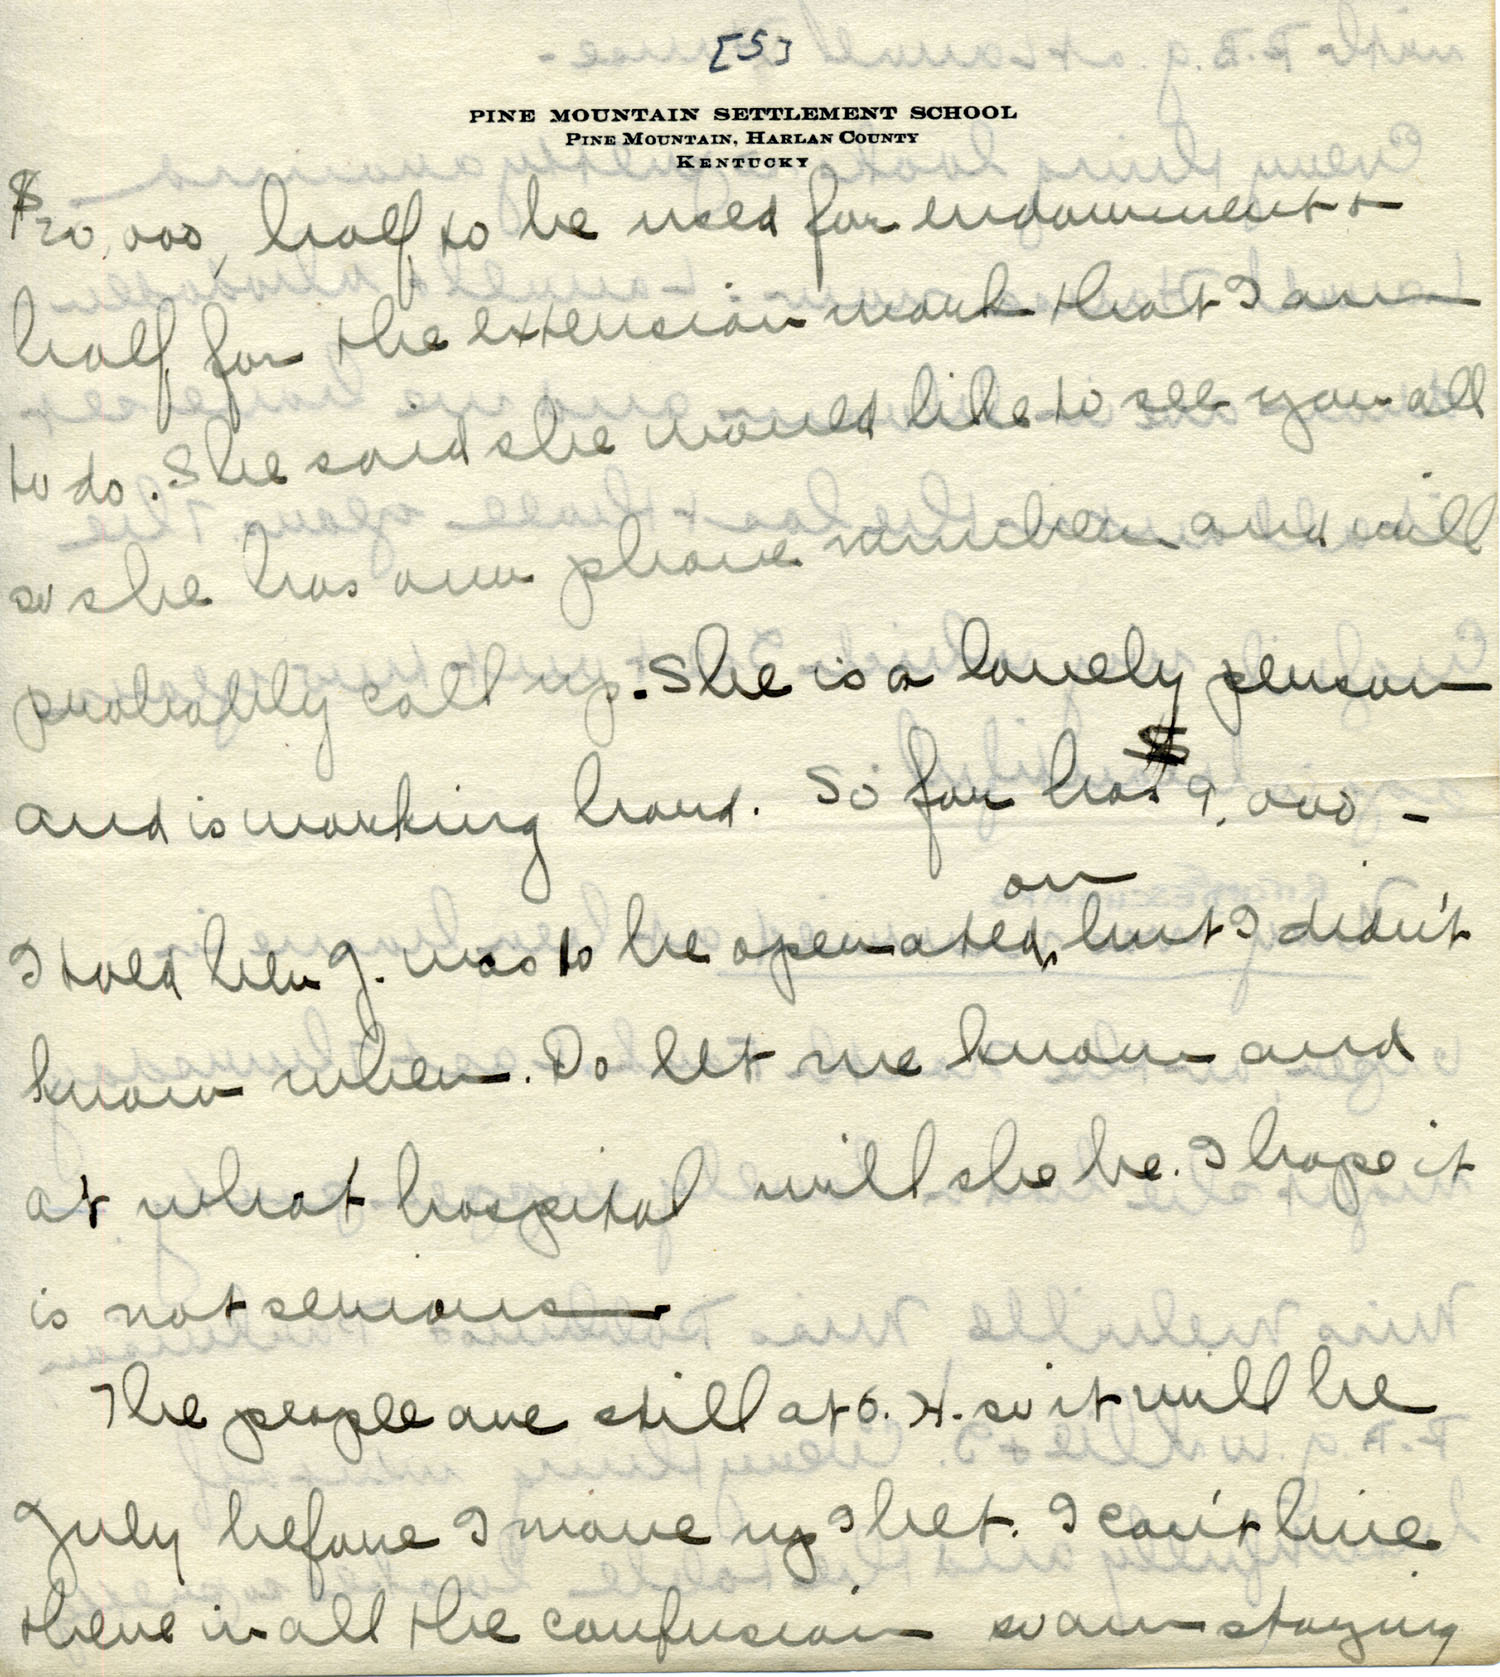 [5]
PINE MOUNTAIN SETTLEMENT SCHOOL
PINE MOUNTAIN, HARLAN COUNTY
KENTUCKY
$20,000, half to be used for endowment +
half for the extension work that I am
to do. She said she would like to see you all
so she has our phone number and will
probably call up. She is a lonely person
and is working hard. So far has $9,000 -
on
I told her J. was to be operated, but I didn't
know when. Do let me know and
at what hospital will she be. I hope it
is not serious —
The people are still at O. H. so it will be
July before I move up I bet. I can't live
there in all the confusion so am staying